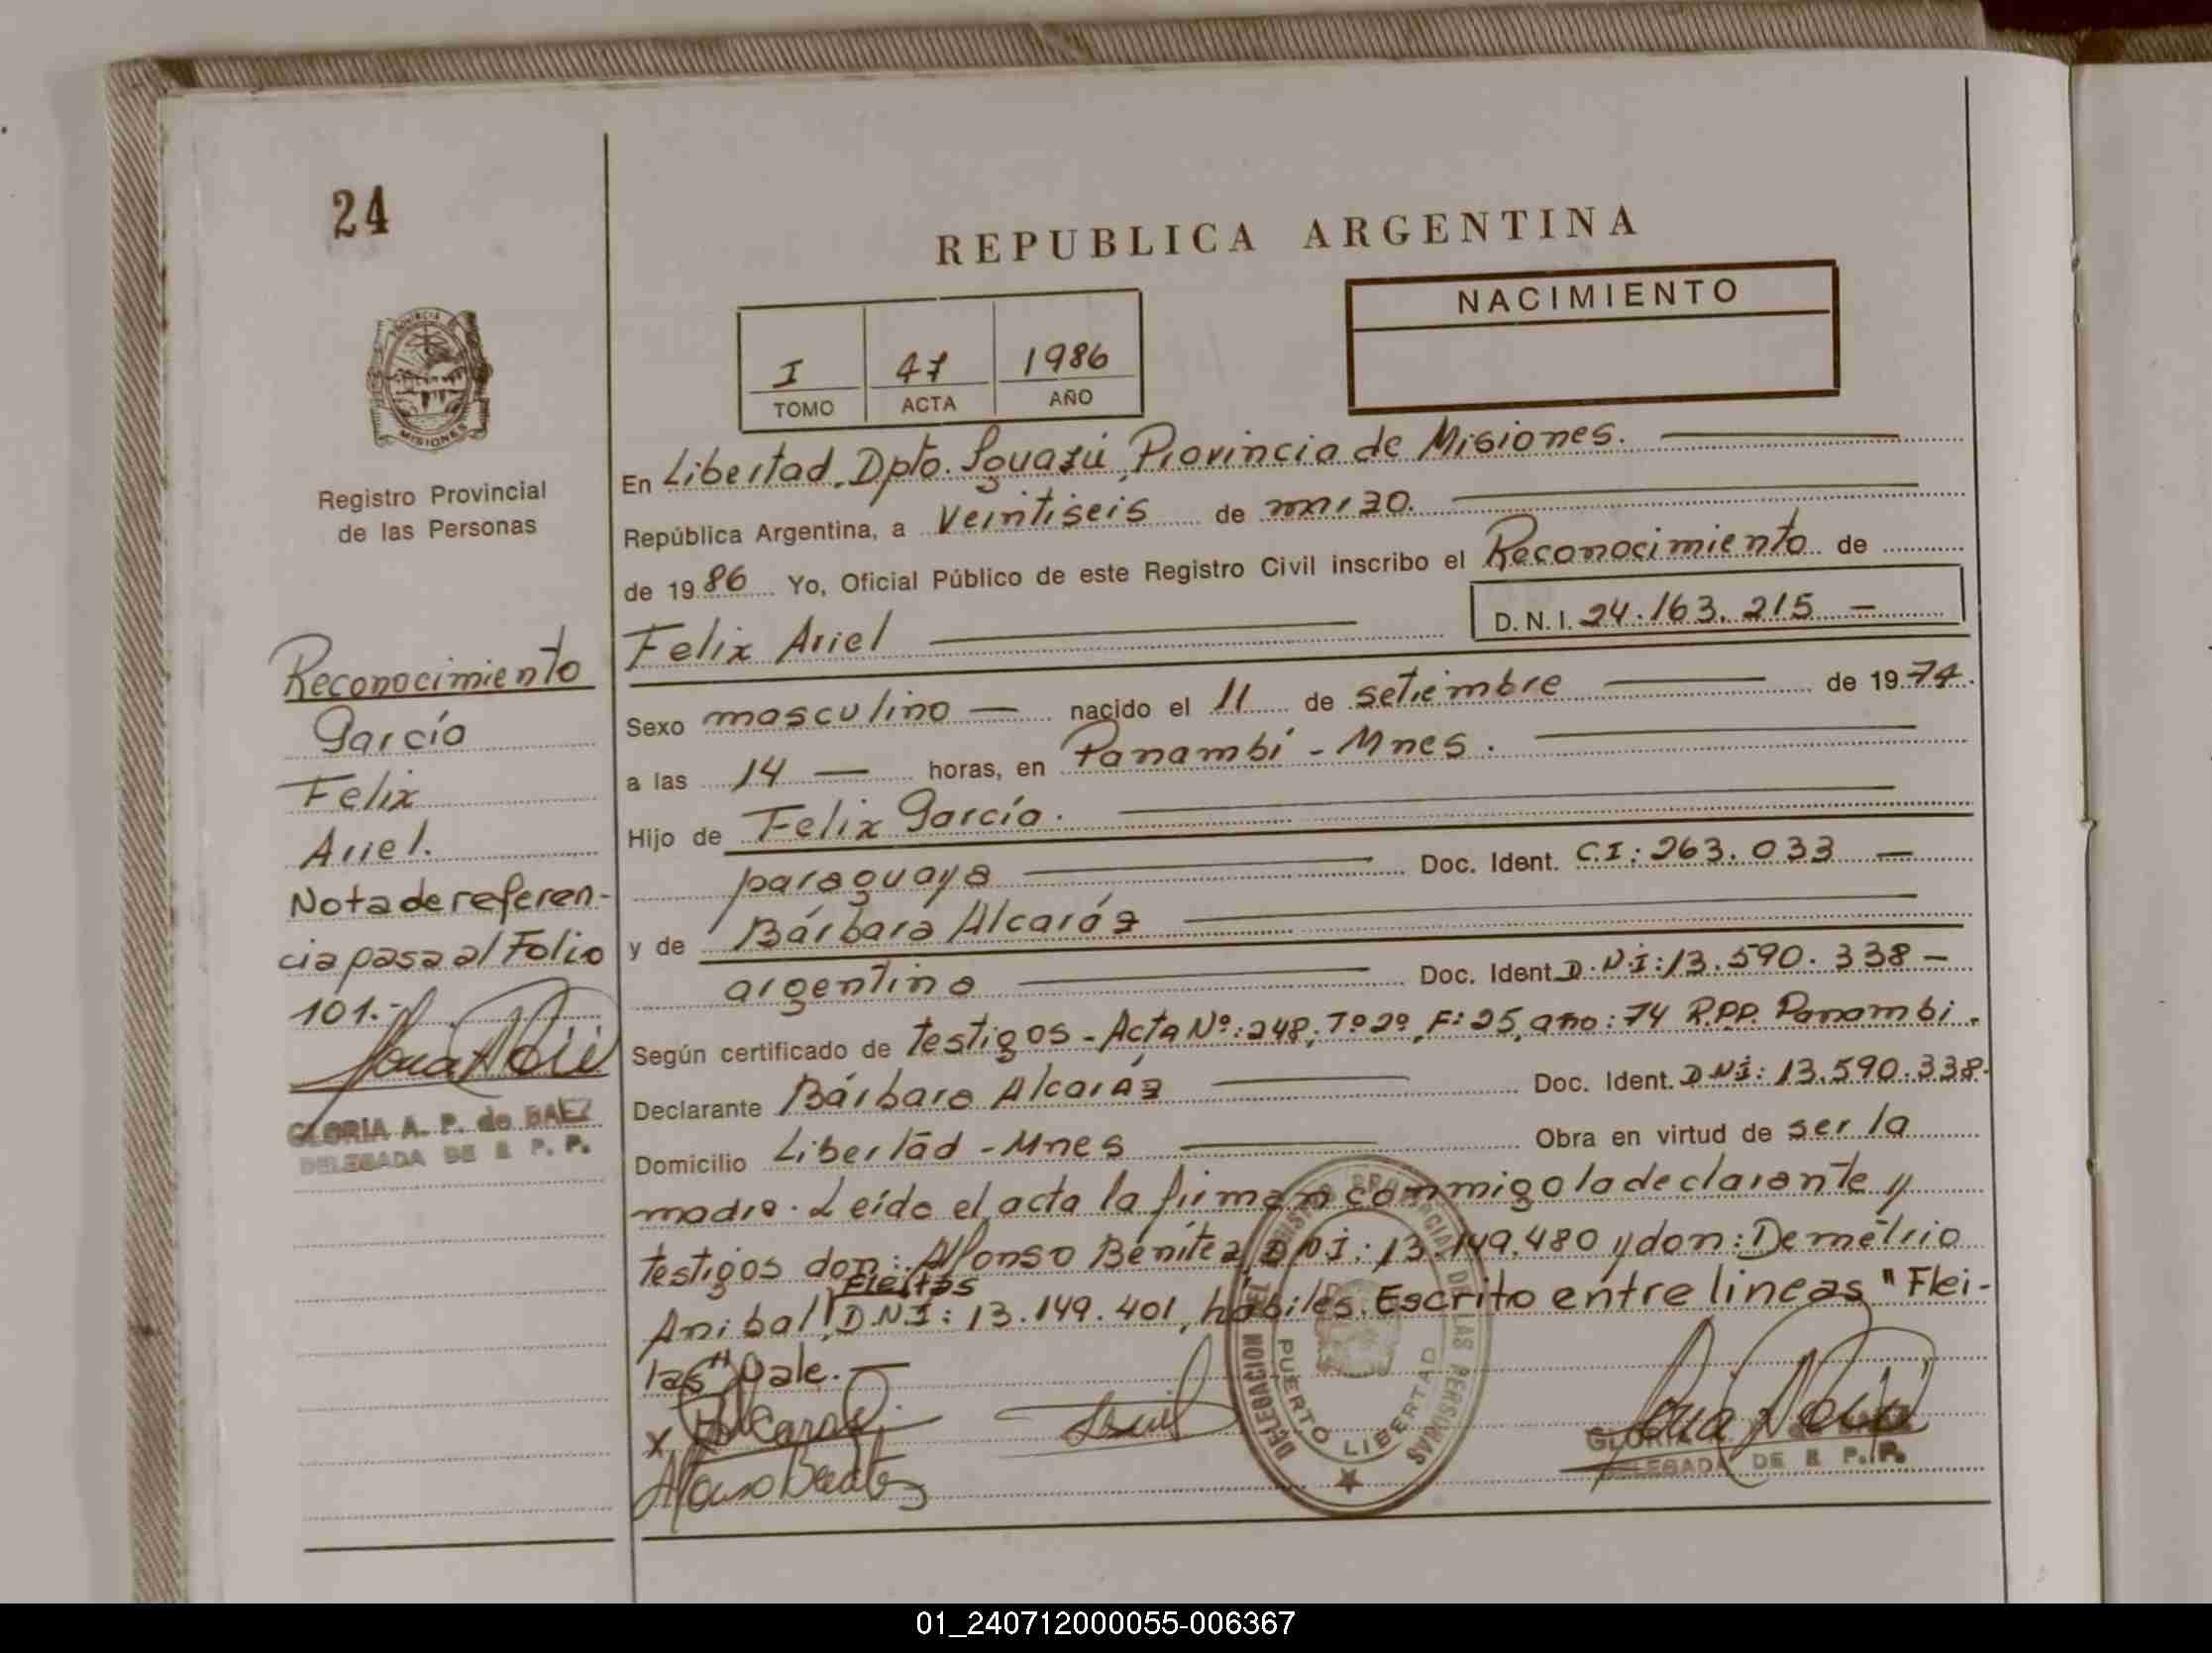 24
REPUBLICA ARGENTINA
NACIMIENTO
I 47 1986
TOMO ACTA AÑO
PROVINCIA
MISIONES
Registro Provincial
de las Personas
En Libertad, Dpto. Iguazú, Provincia de Misiones.
República Argentina, a Veintiseis de marzo.
de 1986 Yo, Oficial Público de este Registro Civil inscribo el Reconocimiento de
Felix Ariel D. N. I. 24.163.215 —
Sexo masculino — nacido el 11 de setiembre — de 1974.
a las 14 — horas, en Panambí - Mnes.
Hijo de Felix García.
paraguaya — Doc. Ident. C.I: 263.033 —
y de Bárbara Alcaráz
argentina — Doc. Ident. D.N.I: 13.590.338 —
Según certificado de testigos - Acta Nº: 248, Tº 2º, F: 25, año: 74 R.P.P. Panambi.
Declarante Bárbara Alcaráz — Doc. Ident. D.N.I: 13.590.338.
Domicilio Libertad - Mnes — Obra en virtud de ser la
madre. Leída el acta la firman conmigo la declarante y
testigos don: Alfonso Benítez, D.N.I: 13.149.480 y don: Demetrio
Fleitas
Anibal, D.N.I: 13.149.401, hábiles. Escrito entre lineas "Flei-
tas" Vale. —
Reconocimiento
García
Felix
Ariel.
Nota de referen-
cia pasa al Folio
101.-
GLORIA A. P. de BAEZ
DELEGADA DE R P. P.
x BAlcaraz
Alfonso Benitez
DELEGACION DEL REGISTRO PROVINCIAL DE LAS PERSONAS
PUERTO LIBERTAD
GLORIA
DELEGADA DE R P. P.
01_240712000055-006367